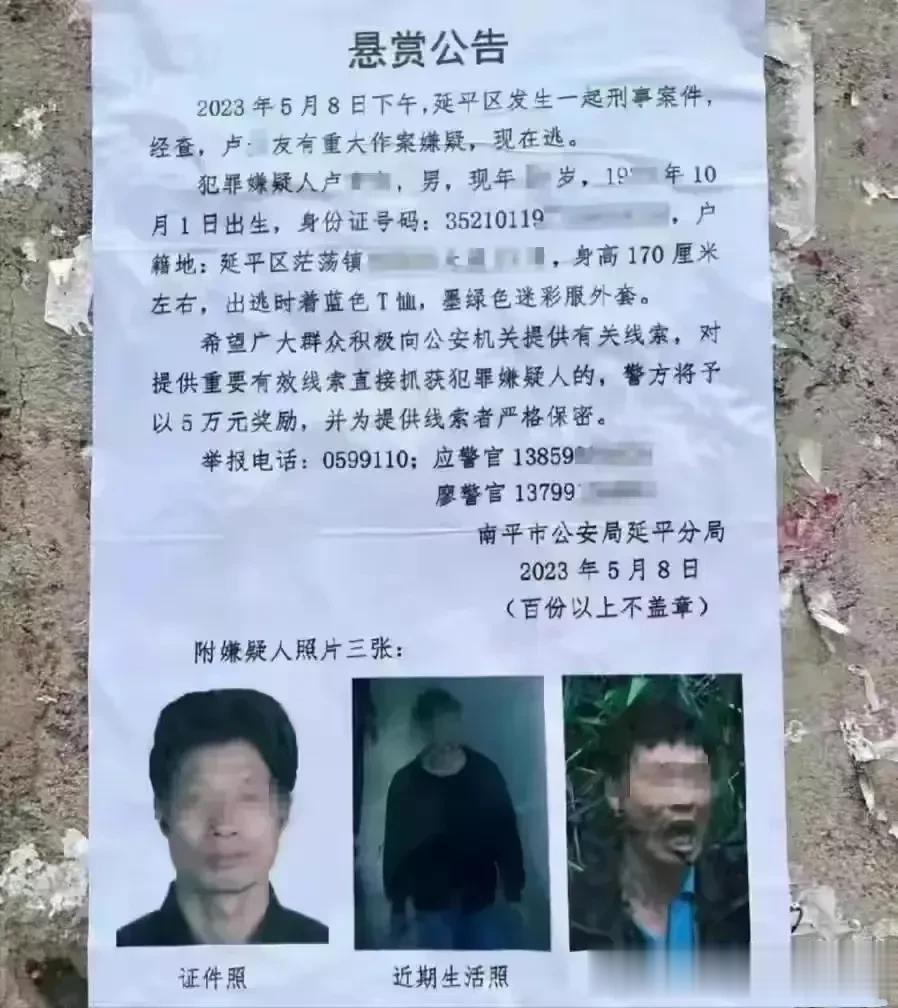 悬赏公告
2023年5月8日下午,延平区发生一起刑事案件,
经查,卢 友有重大作案嫌疑,现在逃。
犯罪嫌疑人卢 ,男,现年 岁,19 年10
月1日出生,身份证号码:35210119 ,户
籍地:延平区茫荡镇 ,身高170厘米
左右,出逃时着蓝色T恤,墨绿色迷彩服外套。
希望广大群众积极向公安机关提供有关线索,对
提供重要有效线索直接抓获犯罪嫌疑人的,警方将予
以5万元奖励,并为提供线索者严格保密。
举报电话:0599110;应警官13859
廖警官13799
南平市公安局延平分局
2023年5月8日
(百份以上不盖章)
附嫌疑人照片三张:
证件照 近期生活照